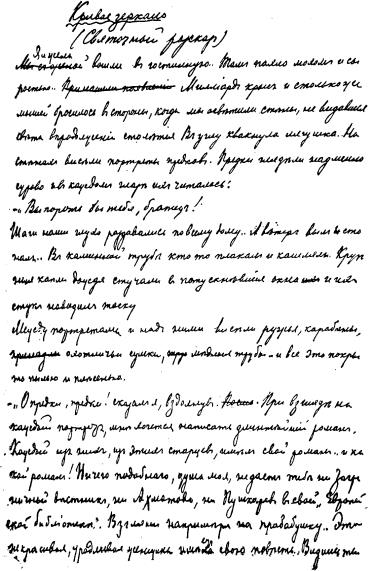 Кривое зеркало
(Святочный рассказ)
Я и жена
вошли в гостинную. Там пахло мохом и сы
ростью. Миллиарды крыс и столько же
мышей бросилось в стороны, когда мы осветили стены, не видавшие
света в продолжении столетия. В углу квакнула лягушка. На
стенах висели портреты предков. Предки глядели надменно
сурово и в каждом глазе их читалось:
— Выпороть бы тебя, братец!
Шаги наши глухо раздавались по всему дому.. А ветер выл и сто
нал.. В каминной трубе кто то плакал и кашлял. Круп
ные капли дождя стучали в потускневшие окна и их
стук наводил тоску
Между портретами и над ними висели ружья, карабины,
охотничьи сумки, медные трубы — и все это покры
то пылью и плесенью.
— О предки, предки! сказал я, вздохнув. При взгляде на
каждый портрет, мне хочется написать длиннейший роман.
Каждый из них, из этих старцев, имел свой роман.. и ка
кой роман! Ничего подобного, душа моя, не даст тебе ни Загра
ничный вестник, ни Ахматова, ни Пушкарев в своей „Европей
ской библиотеке". Взгляни например на прабабушку.. Эта
некрасивая, уродливая женщина имела свою повесть.. Видишь ты